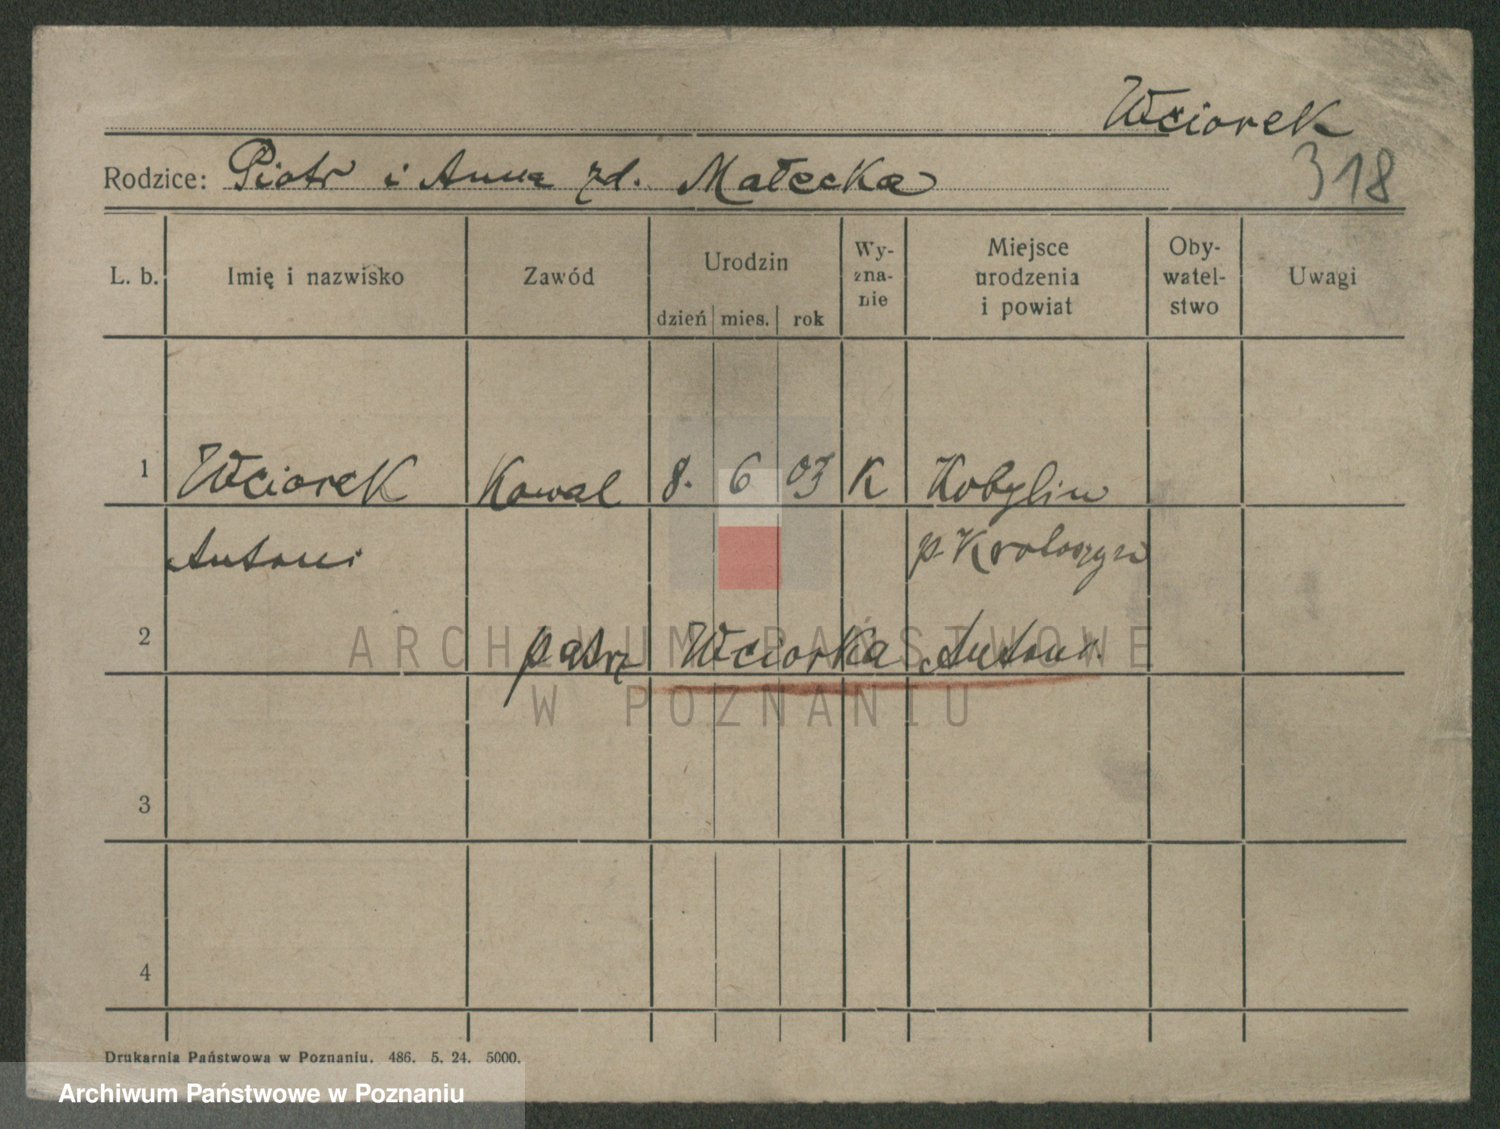 Wciorek
318
Rodzice: Piotr i Anna zd. Małecka
L. b. Imię i nazwisko Zawód Urodzin dzień mies. rok Wy-zna-nie Miejsce urodzenia i powiat Oby-watel-stwo Uwagi
1 Wciorek Kowal 8. 6 03 K Kobylin
Antoni p. Krotoszyn
2 patrz Wciorka Antoni.
ARCHIWUM PAŃSTWOWE
W POZNANIU
3
4
Drukarnia Państwowa w Poznaniu. 486. 5. 24. 5000.
Archiwum Państwowe w Poznaniu